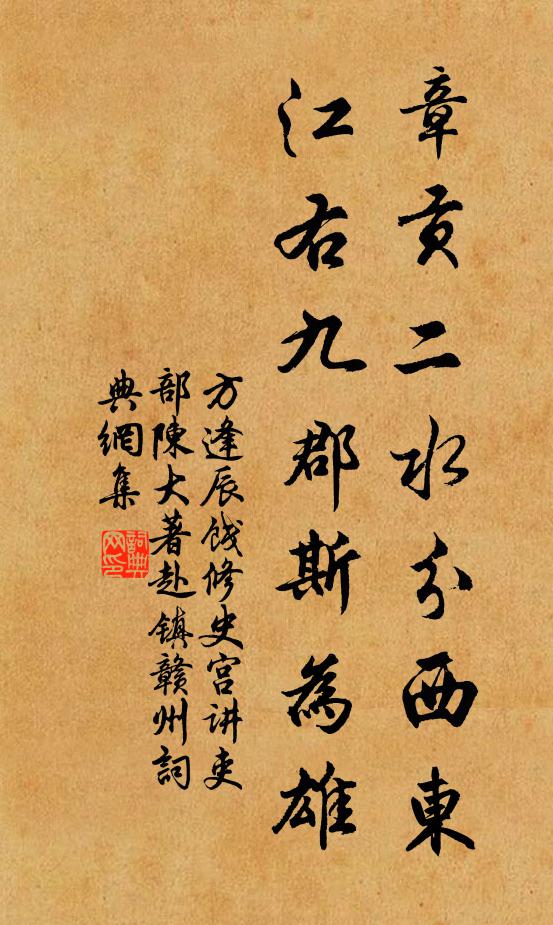 章貢二水分西東
江右九郡斯為雄
方逢辰餞修史宫讲吏
部陳大著赴镇贛州詞
典網集
詞典
网印